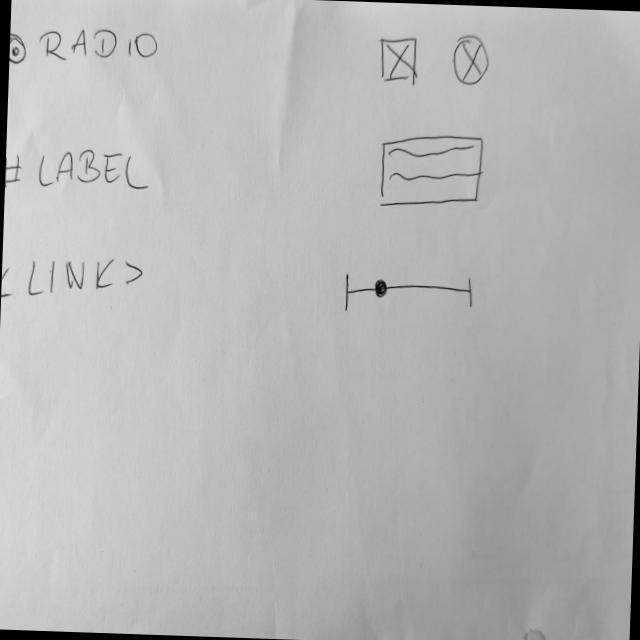 ◉ RADIO
# LABEL
<LINK>